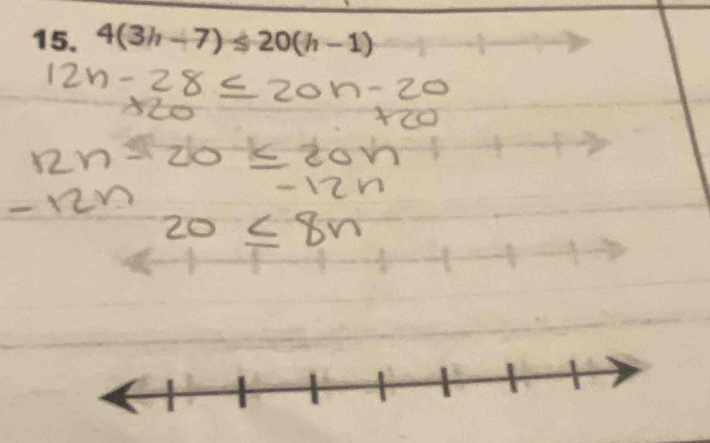 15. 4(3h - 7) ≤ 20(h - 1)
12n - 28 ≤ 20n - 20
+20 +20
12n - 20 ≤ 20n
-12n -12n
20 ≤ 8n